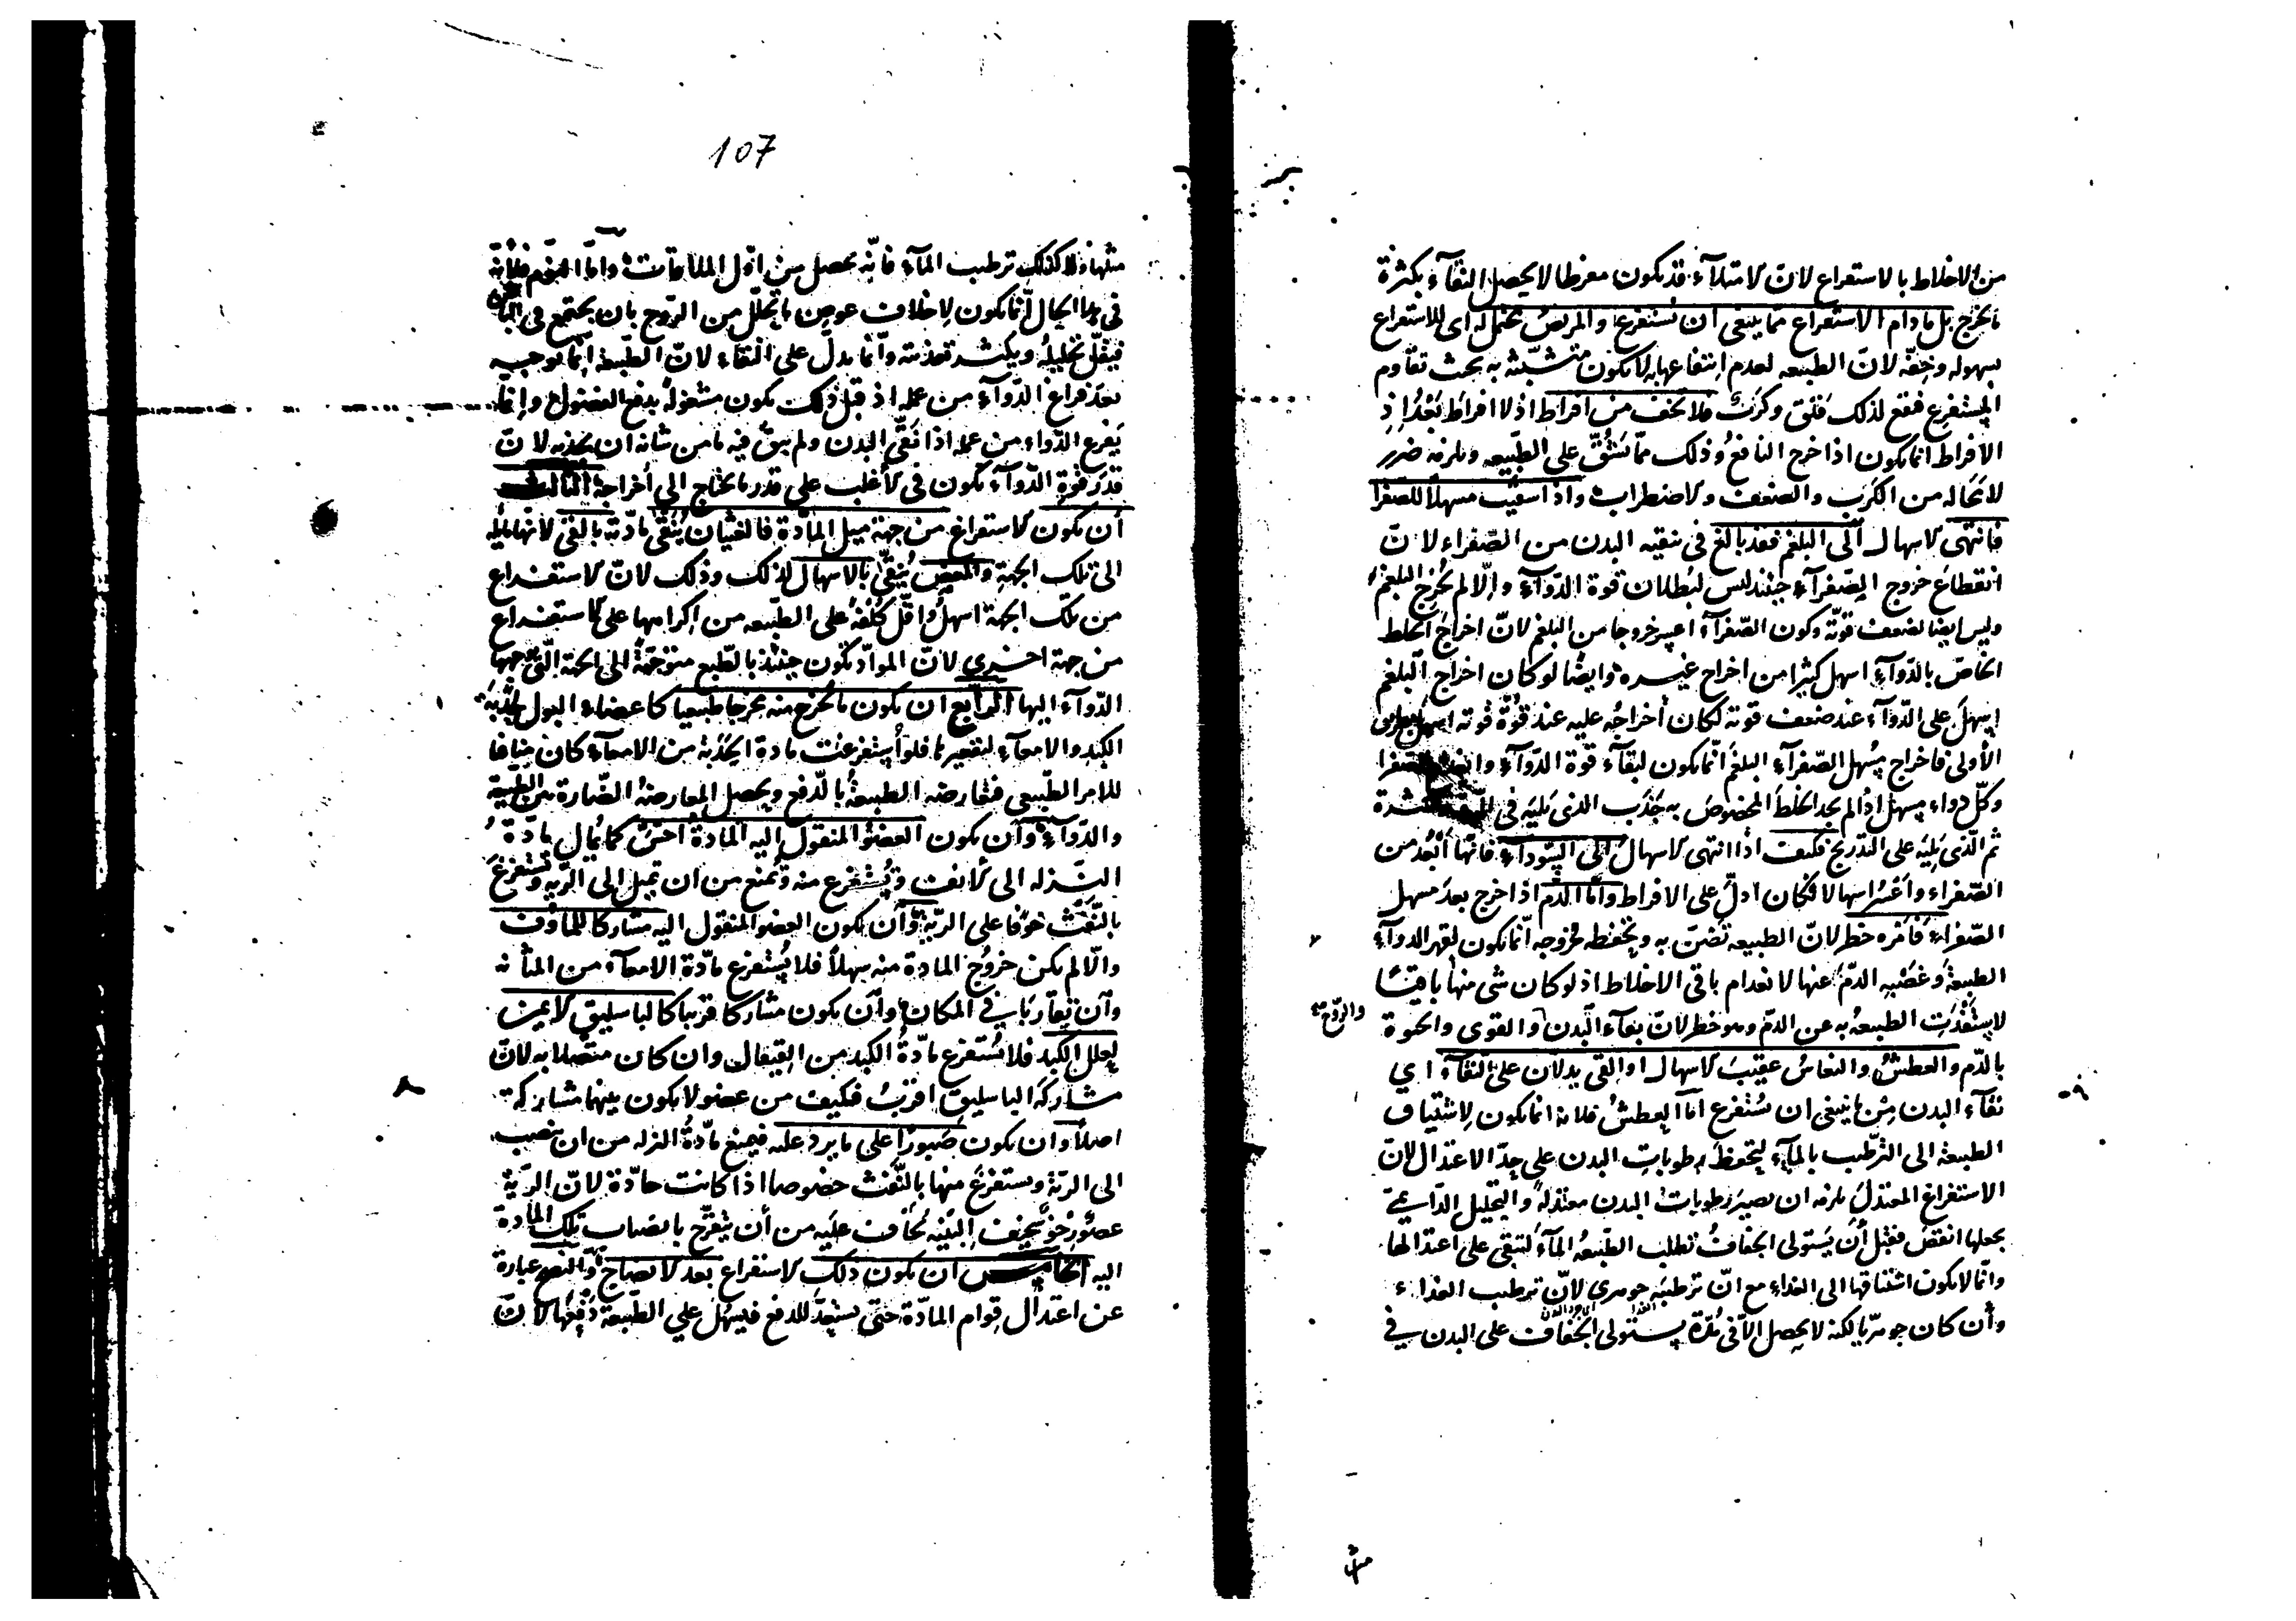 من الاخلاط بالاستفراغ لانّ الامتلآء قد يكون مفرطا لا يحصل النقآء بكثرة
ما يخرج بل ما دام الاستفراغ مما ينبغى ان يُستفرغ والمريضُ يحتمله اى للاستفراغ
بسهوله وخفّة لانّ الطبيعه لعدم انتفاعها به لا يكون متشبّثه به بحيث تقاوم
المستفرغ فيقع لذلك قلق وكرب فلا تخف من افراط اذ لا افراطَ بَعْدُ اذِ
الافراط انما يكون اذا خرج النافعُ وذلك مما يَشُقّ على الطّبيعه ويلزمه ضرر
لا مَحاله من الكرب والضعف والاضطراب واذا سقيت مسهلاً للصفرا
فانتهى الاسهال الى البلغم فقد بالغ فى تنقيه البدن من الصّفراء لانّ
انقطاع خروج الصّفرآء حينئذ ليس لبُطلان قوة الدّوآء والّا لم يُخرِج البلغمَ
وليس ايضا لضعف قوّته وكون الصّفرآء اعسر خروجا من البلغم لانّ اخراج الخلط
الخاصّ بالدّوآء اسهل كثيرا من اخراج غيره وايضًا لو كان اخراج البلغم
اسهلَ على الدّوآء عند ضعف قوته لكان أخراجُه عليه عند قُوّة قوته اسهل بطريق
الأولى فاخراج مُسهل الصّفرآء البلغَم انّما يكون لبقآء قوّة الدّوآء الصفرا
وكلّ دواء مسهل اذا لم يجد الخلطَ المخصوصَ به جَذَب الذى يَليَه فى
ثم الّذى يليَه على التدريج فكيف أذا انتهى الاسهالُ الى السّودآء فانّها أبْعَدُ من
الصّفراء وأعسرُ اسهالا لكان ادلّ على الافراط وامّا الدّم اذا خرج بعدَ مسهل
الصّفراء فأمْره خطر لانّ الطبيعه تضنّ به وتحفظه فخروجه انّما يكون لقهر الدوآء
الطبيعةَ وغَصْبِه الدّمَ عنها لانعدام باقى الاخلاط اذ لو كان شى منها باقيًا
لاستَفْدَتِ الطبيعهُ به عن الدّم وهو خطر لانّ بقآء البدن والقوى والحيوة
والروح صح
بالدّم والعطشُ والنعاسُ عقيبَ الاسهال او القى يدلّان على النقآء اي
نقآء البدن مِن ما ينبغى ان يُستفرغ امّا العطشُ فلانه انما يكون لاشتياق
الطبيعه الى الترطّب بالمآء ليحفظ رطوباتِ البدن على حدّ الاعتدال لانّ
الاستفراغ المعتدلَ يلزمه ان يصير رطوباتُ البدن معتدلةً والتحليل الدّائميّ
يجعلها انقصَ فقبْل أن يَستولى الجفافُ تطلب الطّبيعهُ المآءَ لتبقى على اعتدالها
وانّما لا يكون اشتياقها الى الغذاء مع انّ ترطيبَه جوهرى لانّ ترطيب الغذاء
وأن كان جوهريّا لكنه لا يحصل الّا فى مُدّة يستولى الجفاف على البدن في
مثلها
107
مثلها ولا كذلك ترطيب المآء فانّه يحصل من اوّل الملاقات وامّا النّوم فلانّه
فى هذا الحال انّما يكون لاخلاف عوض ما يتحلّل من الرّوح بان يجتمع فى الباطن
فيقلّ تحليلُه ويكثر تغذيته وانّما يدلّ على النقاء لانّ الطّبيعة انّما توجبه
بعدَ فراغ الدّوآء من عمله اذ قبل ذلك يكون مشغولةً بدفع الفضول وانّما
يَفرغ الدّواء من عمله اذا نَقّى البدن ولم يبقَ فيه ما من شانه ان يجذبه لانّ
قدرَ قوة الدّوآء يكون فى الأغلب على قدر ما يحتاج الى أخراجه الثالث
أن يكون الاستفراغ من جهة ميل المادّة فالغثيان يُنَقّى مادّته بالقى لانّها مايله
الى تلك الجهة والمغص يُنقّى بالاسهال لذلك وذلك لانّ الاستفراغ
من تلك الجهة اسهلُ واقلّ كُلفةً على الطّبيعه من إكراهها على الاستفراغ
من جهة اخرى لانّ الموادّ يكون حينئذ بالطّبع متوجّهةً الى الجهة التّى يوجهها
الدّوآء اليها الرّابع ان يكون ما يُخرَج منه مخرجا طبيعيا كاعضاء البول لحَدَبة
الكبد والامعآء لتقعيرها فلو أُستفرغَت مادة الحَدَبة من الامعآء كان منافيا
للامر الطّبيعى فتعارضه الطبيعهُ بالدّفع ويحصل المعارضةُ الضّارة بين الطبيعة
والدّوآء وأن يكون العضوُ المنقول إليه المادة أخسّ كما يُمال مادّةُ
النّزله الى الانف ويُستفرغ منه ويُمنع من ان تميل الى الرّيه ويُستفرغَ
بالنّفْث خوفًا على الريّة وأن يكون العضو المنقول اليه مشاركا للمأوف
والّا لم يكن خروجُ المادة منه سهلاً فلا يُستفرغ مادّة الامعآء من المثانه
وأن يتقاربا في المكان وأن يكون مشاركا قريبا كالباسليق الايمن
لعلل الكبد فلا يُستفرغ مادّةُ الكبد من القيفال وان كان متّصلا به لانّ
مشاركة الباسليق اقربُ فكيف من عضو لا يكون بينهما مشاركة
اصلاً وان يكون صَبورًا على ما يرد عليه فيمنع مادّةُ النزله من ان ينصب
الى الريّة ويستفرغ منها بالنَّفث خصوصا اذا كانت حادّة لانّ الريّة
عضوٌ رِخوٌ سخيف البنْيه يُخاف عليَه من أن يتقرّح بانصباب تلك المادة
اليه الخامس ان يكون ذلك الاستفراغ بعد الانضاج والنّضج عبارة
عن اعتدال قِوام المادّة حتى يستعدّ للدفع فيسهل علي الطّبيعة دفعُها لانّ